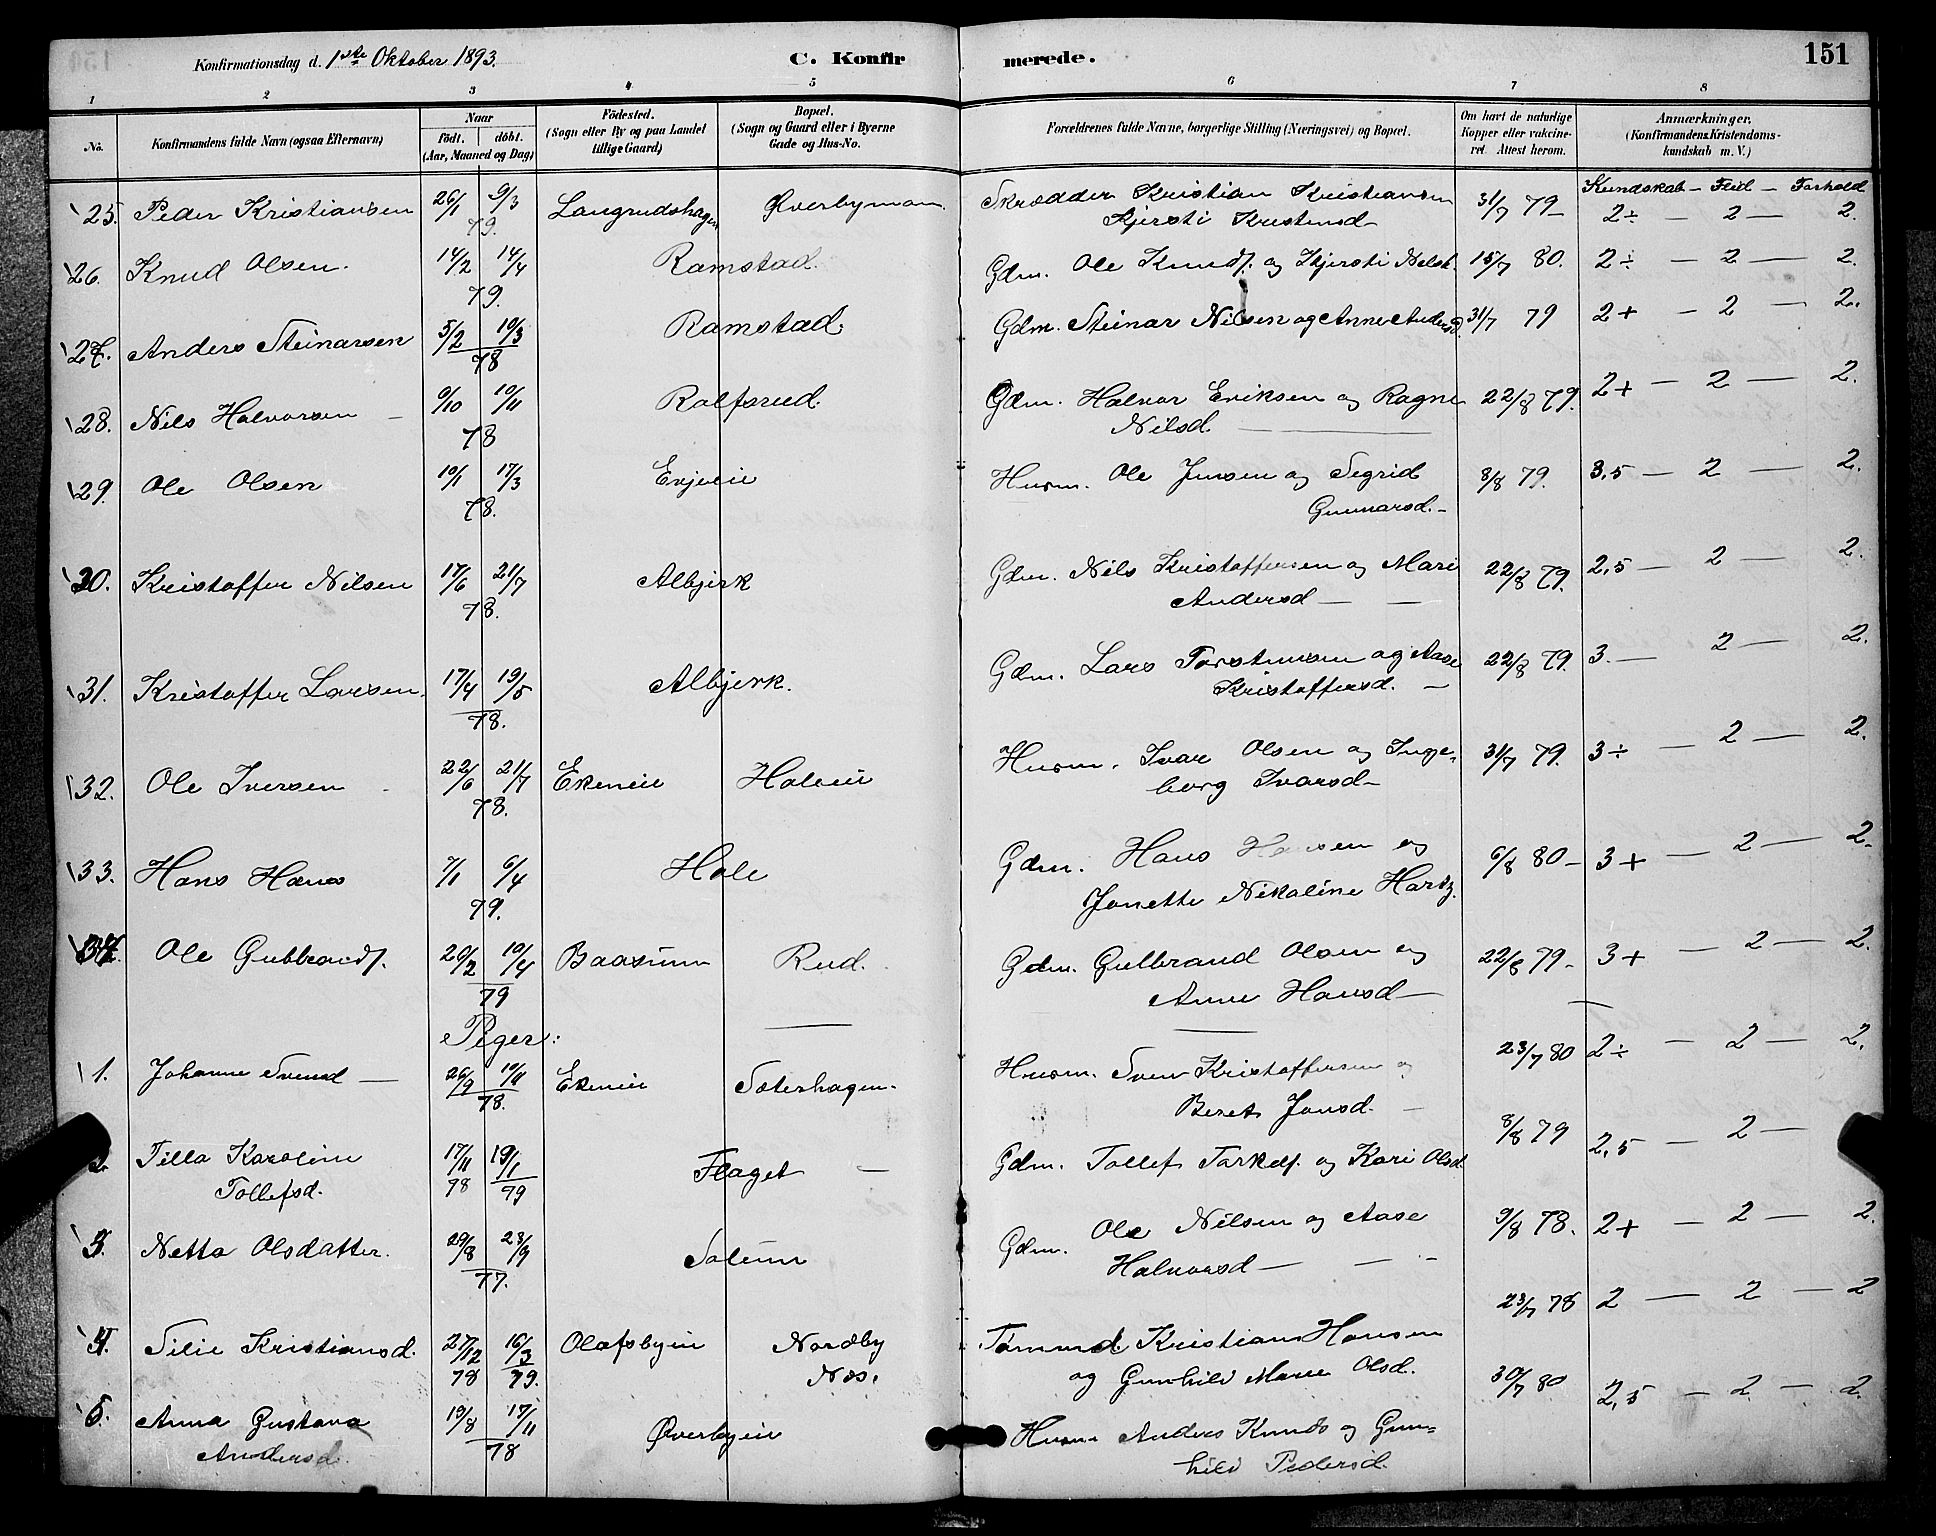 Konfirmationsdag d. 1ste Oktober 1893. C. Konfirmerede. 151
1 2 3 4 5 6 7 8
No. Konfirmandens fulde Navn (ogsaa Efternavn) Naar födt. döbt. (Aar, Maaned og Dag) Födested. (Sogn eller By og paa Landet tillige Gaard) Bopæl. (Sogn og Gaard eller i Byerne Gade og Hus-No. Forældrenes fulde Navne, borgerlige Stilling (Næringsvei) og Bopæl. Om havt de naturlige Kopper eller vaccineret. Attest herom. Anmærkninger. (Konfirmandens Kristendomskundskab m. V.)
Kundskab – Flid – Forhold
25. Peder Kristiansen 26/1 9/3 79. Langrudshagen Øverbyman Skrædder Kristian Kristiansen 31/7 79 – 2÷ – 2 – 2.
Kjersti Kristensd –
26. Knud Olsen. 14/2 14/4 79. Ramstad. Gdm. Ole Knuds. og Kjersti Nilsd. 15/7 80. 2÷ – 2 – 2.
27. Anders Steinarsen 5/2 10/3 78 Ramstad. Gdm. Steinar Nilsen og Anne Andersd. 31/7 79 2+ – 2 – 2.
28. Nils Halvorsen – 9/10 10/11 78 Rolfsrud. Gdm. Halvor Eriksen og Ragne 22/8 79. 2+ – 2 – 2.
Nilsd.
29. Ole Olsen 10/1 17/3 78. Enjeeie Husm. Ole Jensen og Segrid 8/8 79. 3,5 – 2 – 2.
Gunnarsd. –
30. Kristoffer Nilsen 17/6 21/7 78. Albjerk Gdm. Nils Kristoffersen og Mari 22/8 79. 2,5 – 2 – 2.
Andersd –
31. Kristoffer Larsen. 17/4 19/5 78. Albjerk. Gdm. Lars Torstensen og Aase 22/8 79. 3. – 2 – 2.
Kristoffersd. –
32. Ole Iversen 22/6 21/7 78. Ekeneie Holeie Husm. Ivar Olsen og Inge- 31/7 79. 3÷ – 2 – 2.
borg Ivarsd –
33. Hans Hans 7/1 6/4 79. Hole Gdm. Hans Hansen og 6/8 80 – 3+ – 2 – 2.
Jonette Nikoline
34. Ole Gubbrands. 20/2 10/4 79 Baasum Rud. Gdm. Gulbrand Olsen og 22/8 79 – 3+ – 2 – 2.
Anne Hansd –
Piger:
1. Johanne Svensd – 26/9 10/11 78. Ekeneie Sæterhagen. Husm. Sven Kristoffersen og 23/7 80 2÷ – 2 – 2.
Beret Jonsd. –
2. Tilla Karoline 17/11 78 19/1 79 Flaget – Gdm. Tollef Torkels. og Kari Olsd. 8/8 79 2,5 – 2 – 2.
Tollefsd.
3. Netta Olsdatter. 29/8 23/9 77. Soleim Gdm. Ole Nilsen og Aase 9/8 78. 2+ – 2 – 2.
Halvorsd –
4. Tilie Kristiansd. 27/12 78 16/3 79. Olafsbyeie Nordby Tømmd. Kristian Hansen 23/7 78 2 – 2 – 2
Næs. og Gunhild Marie Olsd.
5. Anna Gustava 19/8 17/11 78 Øverbyeie Husm. Anders Knuds og Gun- 30/7 80 2,5 – 2 – 2.
Andersd. hild Pedersd.